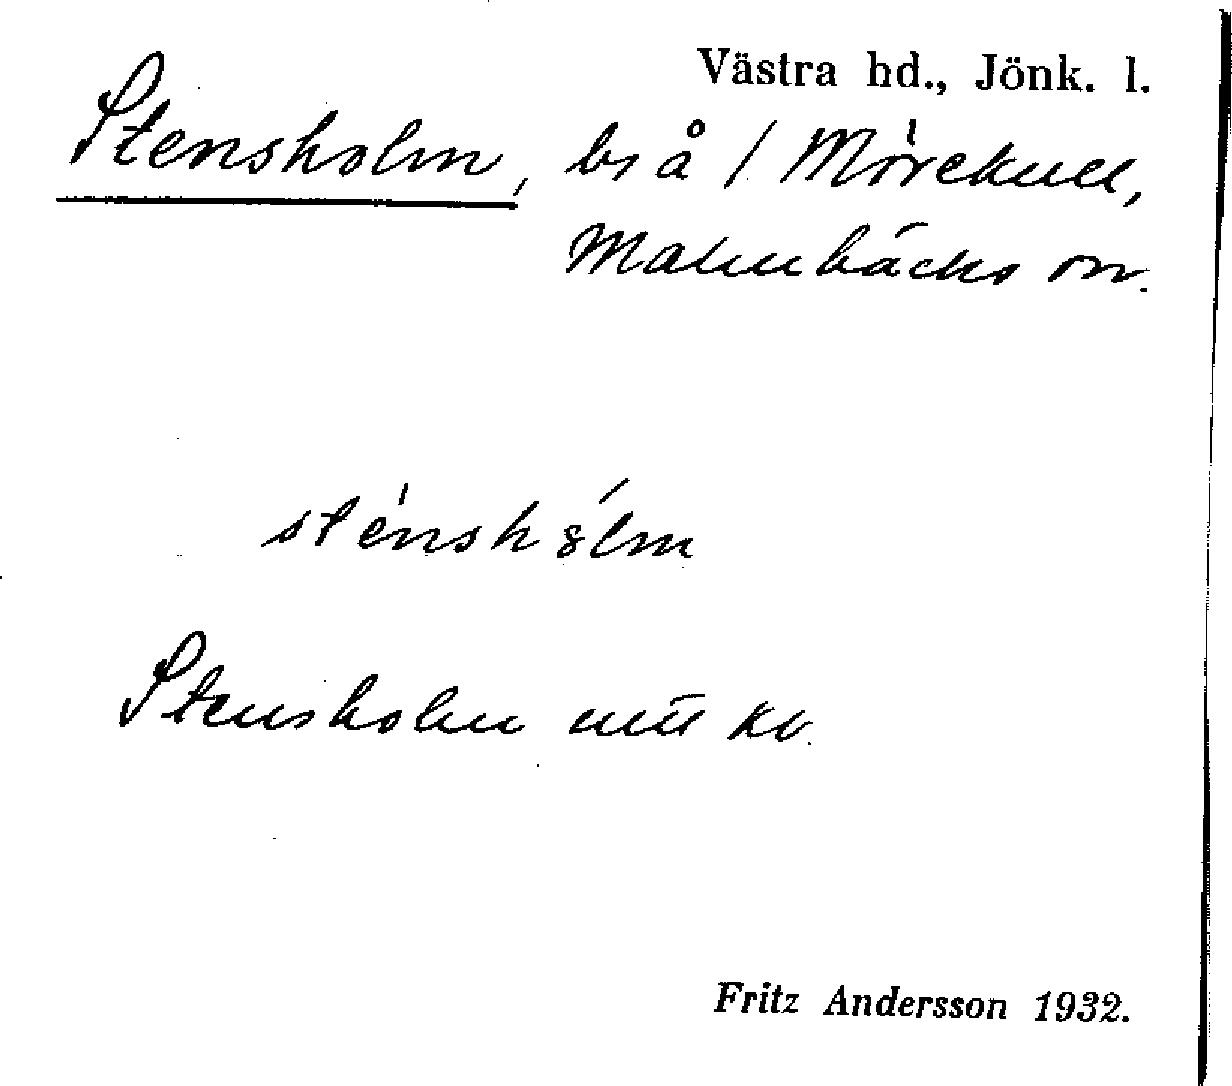 Västra hd., Jönk. l.
Stensholm, bs å / Mörekull,
Malmbäcks sn.
sténshȣ́lm
Stensholm
Fritz Andersson 1932.